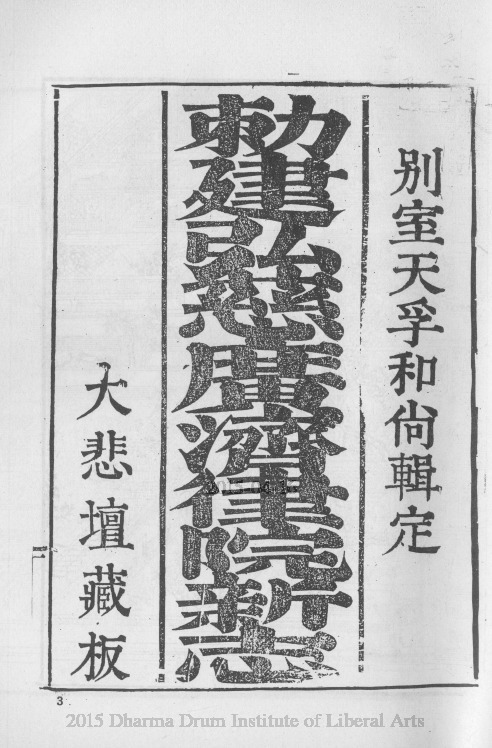 別室天孚和尙輯定
勅建弘慈廣濟律院新志
大悲壇藏板
3
2015 Dharma Drum Institute of Liberal Arts